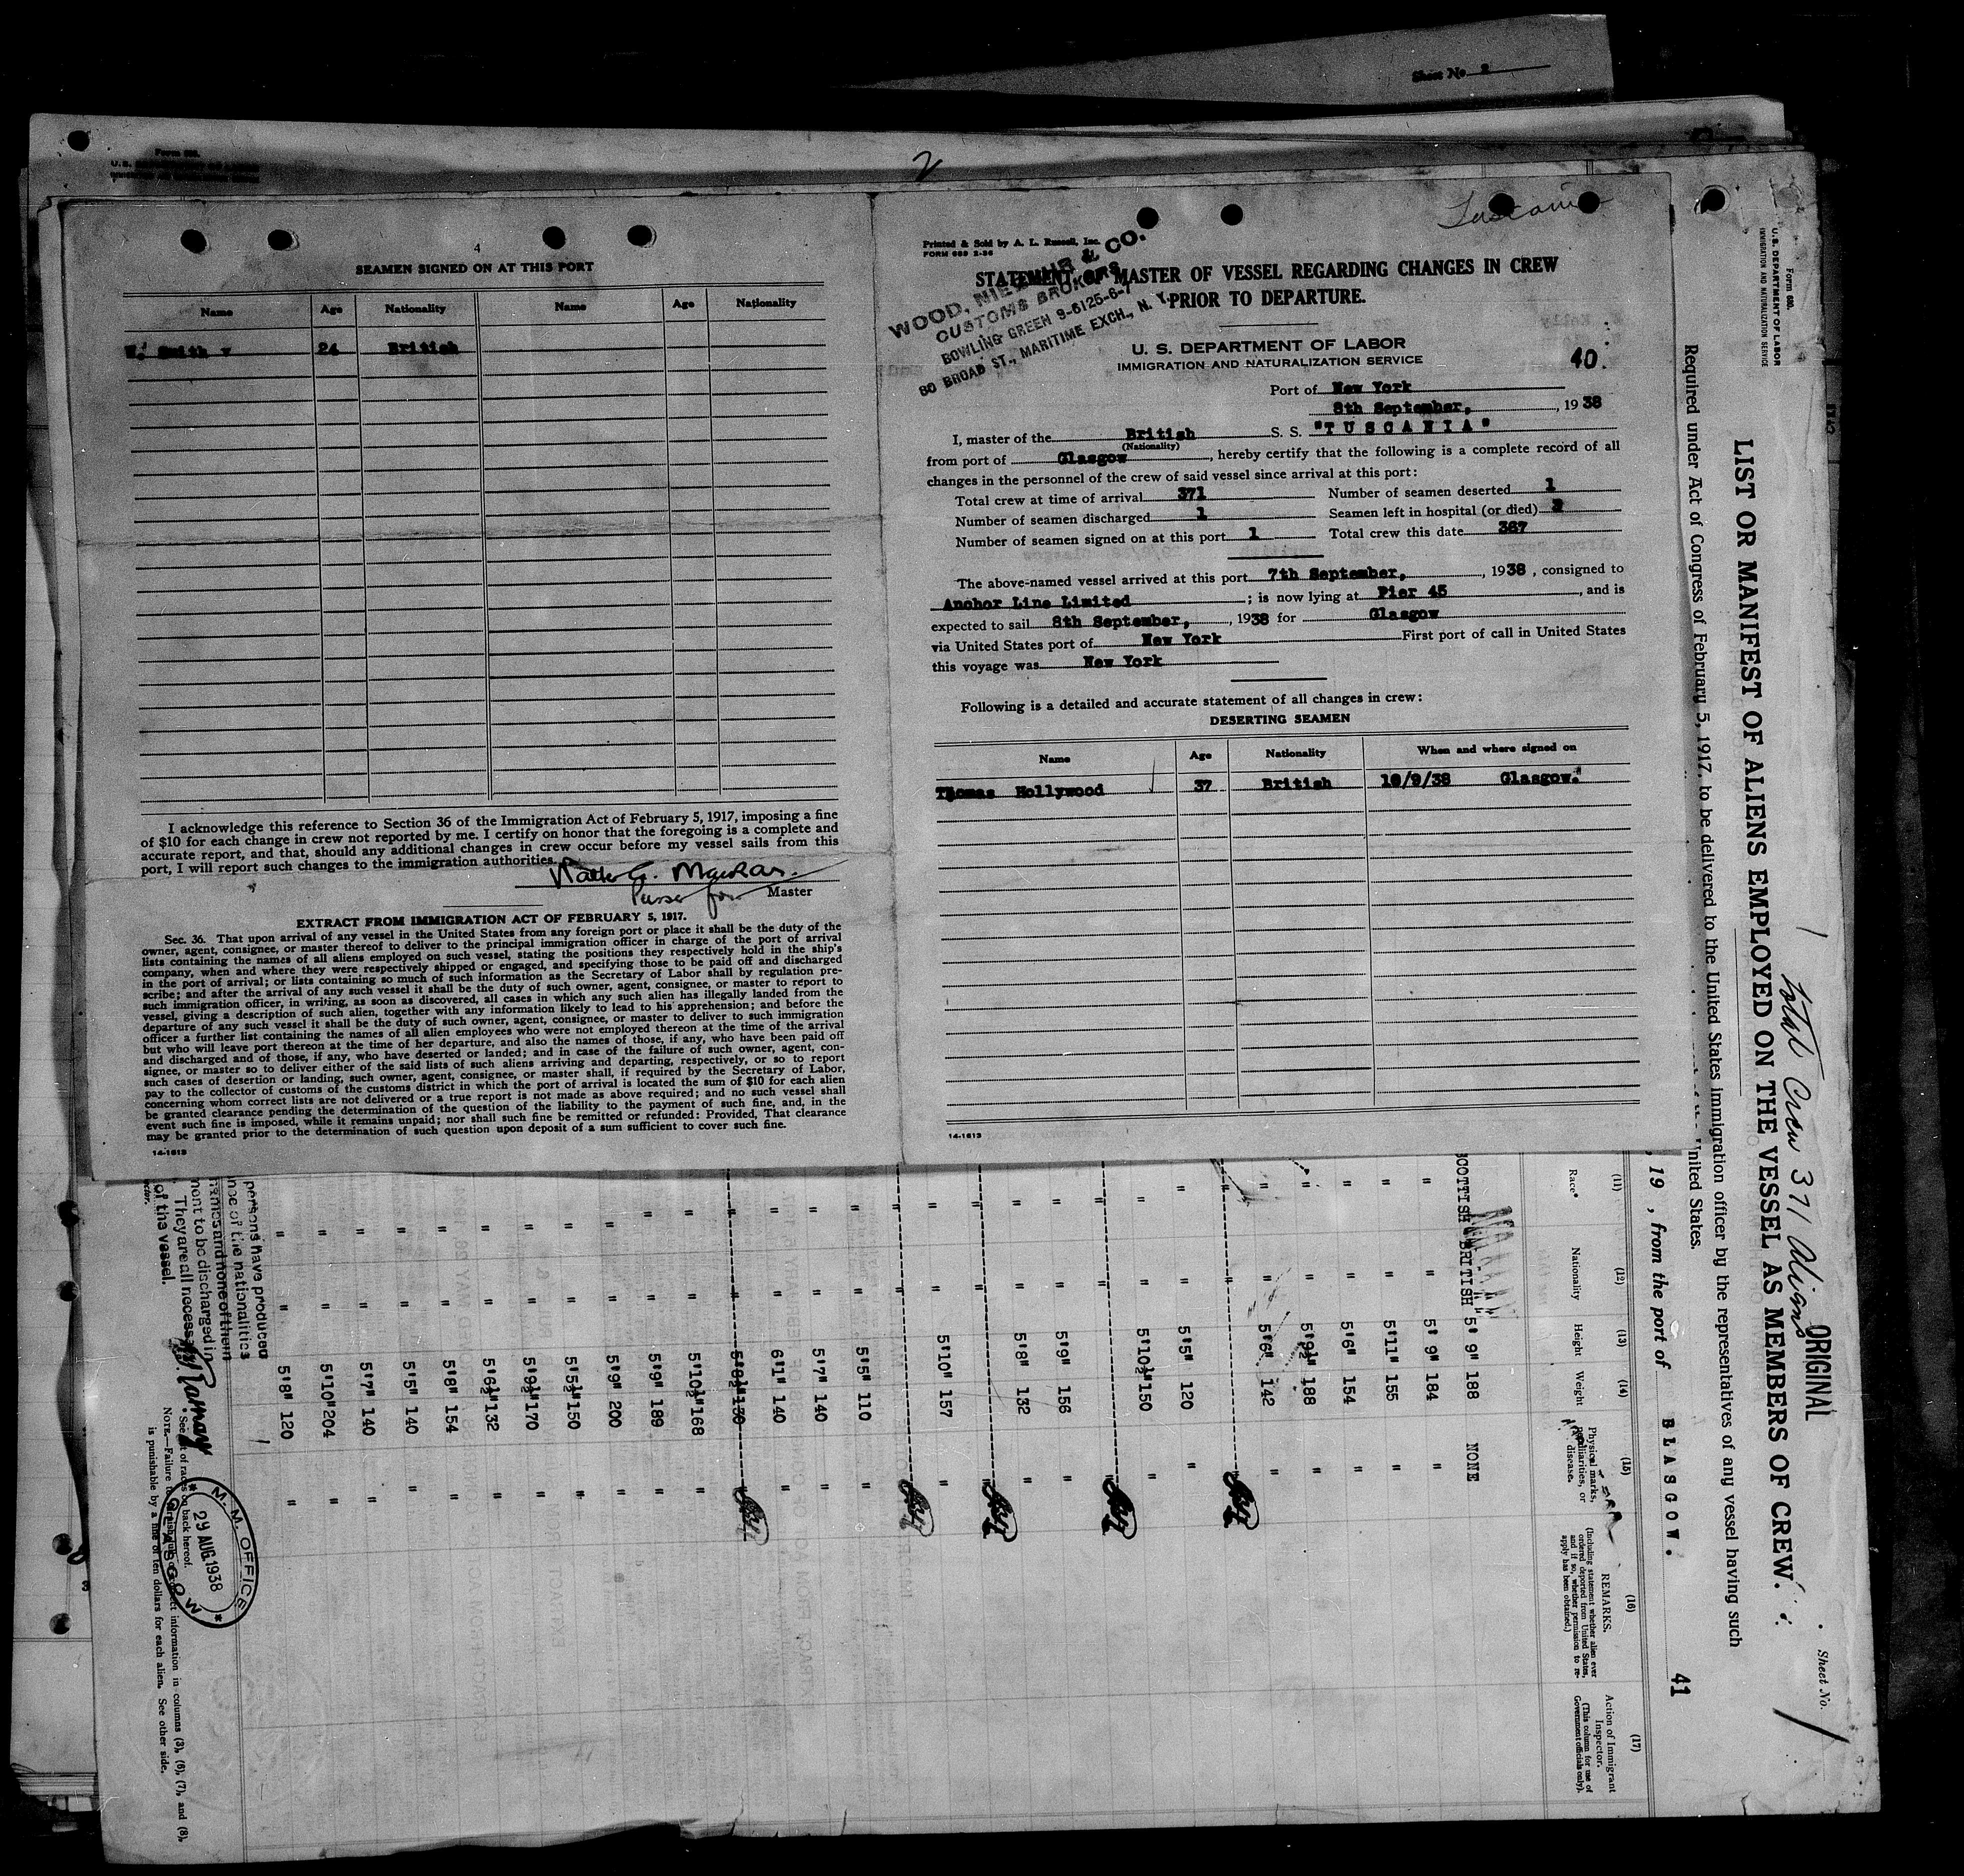 Sheet No. 2
2
Form 680.
4
SEAMEN SIGNED ON AT THIS PORT
Name Age Nationality Name Age Nationality
W. Smith v 24 British
I acknowledge this reference to Section 36 of the Immigration Act of February 5, 1917, imposing a fine
of $10 for each change in crew not reported by me. I certify on honor that the foregoing is a complete and
accurate report, and that, should any additional changes in crew occur before my vessel sails from this
port, I will report such changes to the immigration authorities.
Purser for Master
EXTRACT FROM IMMIGRATION ACT OF FEBRUARY 5, 1917.
Sec. 36. That upon arrival of any vessel in the United States from any foreign port or place it shall be the duty of the
owner, agent, consignee, or master thereof to deliver to the principal immigration officer in charge of the port of arrival
lists containing the names of all aliens employed on such vessel, stating the positions they respectively hold in the ship's
company, when and where they were respectively shipped or engaged, and specifying those to be paid off and discharged
in the port of arrival; or lists containing so much of such information as the Secretary of Labor shall by regulation pre-
scribe; and after the arrival of any such vessel it shall be the duty of such owner, agent, consignee, or master to report to
such immigration officer, in writing, as soon as discovered, all cases in which any such alien has illegally landed from the
vessel, giving a description of such alien, together with any information likely to lead to his apprehension; and before the
departure of any such vessel it shall be the duty of such owner, agent, consignee, or master to deliver to such immigration
officer a further list containing the names of all alien employees who were not employed thereon at the time of the arrival
but who will leave port thereon at the time of her departure, and also the names of those, if any, who have been paid off
and discharged and of those, if any, who have deserted or landed; and in case of the failure of such owner, agent, con-
signee, or master so to deliver either of the said lists of such aliens arriving and departing, respectively, or so to report
such cases of desertion or landing, such owner, agent, consignee, or master shall, if required by the Secretary of Labor,
pay to the collector of customs of the customs district in which the port of arrival is located the sum of $10 for each alien
concerning whom correct lists are not delivered or a true report is not made as above required; and no such vessel shall
be granted clearance pending the determination of the question of the liability to the payment of such fine, and, in the
event such fine is imposed, while it remains unpaid; nor shall such fine be remitted or refunded: Provided, That clearance
may be granted prior to the determination of such question upon deposit of a sum sufficient to cover such fine.
14-1613
Tuscania
Printed & Sold by A. L. Russell, Inc.
FORM 689 2-36
STATEMENT OF MASTER OF VESSEL REGARDING CHANGES IN CREW
PRIOR TO DEPARTURE.
WOOD, NIEBUHR & CO.
CUSTOMS BROKERS
BOWLING GREEN 9-6125-6-7
80 BROAD ST., MARITIME EXCH., N. Y.
U. S. DEPARTMENT OF LABOR
IMMIGRATION AND NATURALIZATION SERVICE
40.
Port of New York
8th September, , 1938
I, master of the British S. S. "TUSCANIA"
(Nationality)
from port of Glasgow , hereby certify that the following is a complete record of all
changes in the personnel of the crew of said vessel since arrival at this port:
Total crew at time of arrival 371 Number of seamen deserted 1
Number of seamen discharged 1 Seamen left in hospital (or died)
Number of seamen signed on at this port 1 Total crew this date 367
The above-named vessel arrived at this port 7th September, , 1938 , consigned to
Anchor Line Limited ; is now lying at Pier 45 , and is
expected to sail 8th September, , 1938 for Glasgow
via United States port of New York First port of call in United States
this voyage was New York
Following is a detailed and accurate statement of all changes in crew:
DESERTING SEAMEN
Name Age Nationality When and where signed on
Thomas Hollywood 37 British 10/9/38 Glasgow.
14-1613
Form 680.
U. S. DEPARTMENT OF LABOR
IMMIGRATION AND NATURALIZATION SERVICE
ORIGINAL
Sheet No. 1
Total Crew 371 Aliens
LIST OR MANIFEST OF ALIENS EMPLOYED ON THE VESSEL AS MEMBERS OF CREW.
Required under Act of Congress of February 5, 1917, to be delivered to the United States immigration officer by the representatives of any vessel having such
United States.
, 19 , from the port of BLASGOW.
41
(11) (12) (13) (14) (15) (16) (17)
Race* Nationality Height Weight Physical marks, peculiarities, or disease.
REMARKS.
(Including statement whether alien ever ordered deported from United States, and if so, whether permission to re-apply has been obtained.)
Action of Immigrant Inspector.
(This column for use of Government officials only).
SCOTTISH BRITISH 5' 9" 188 NONE
" " 5' 9" 184 "
" " 5'11" 155 "
" " 5'6" 154 "
" " 5'9½" 188 "
" " 5'6" 142 "
" " 5'5" 120 "
" " 5'10½" 150 "
" " 5'9" 156 "
" " 5'8" 132 "
" " 5'10" 157 "
" " 5'5" 110 "
" " 5'7" 140 "
" " 6'1" 140 "
" " 5'8½" 130 "
" " 5'10½" 168 "
" " 5'9" 189 "
" " 5'9" 200 "
" " 5'5½" 150 "
" " 5'9½" 170 "
" " 5'6½" 132 "
" " 5'8" 154 "
" " 5'5" 140 "
" " 5'7" 140 "
" " 5'10" 204 "
" " 5'8" 120 "
persons have produced
nce of the nationalities
names and none of them
ment to be discharged in
They are all necessary
of the vessel.
M. M. OFFICE
29 AUG. 1938
GLASGOW
* See list of races on back hereof.
NOTE.—Failure to furnish full or correct information in columns (3), (6), (7), and (8),
is punishable by a fine of ten dollars for each alien. See other side.